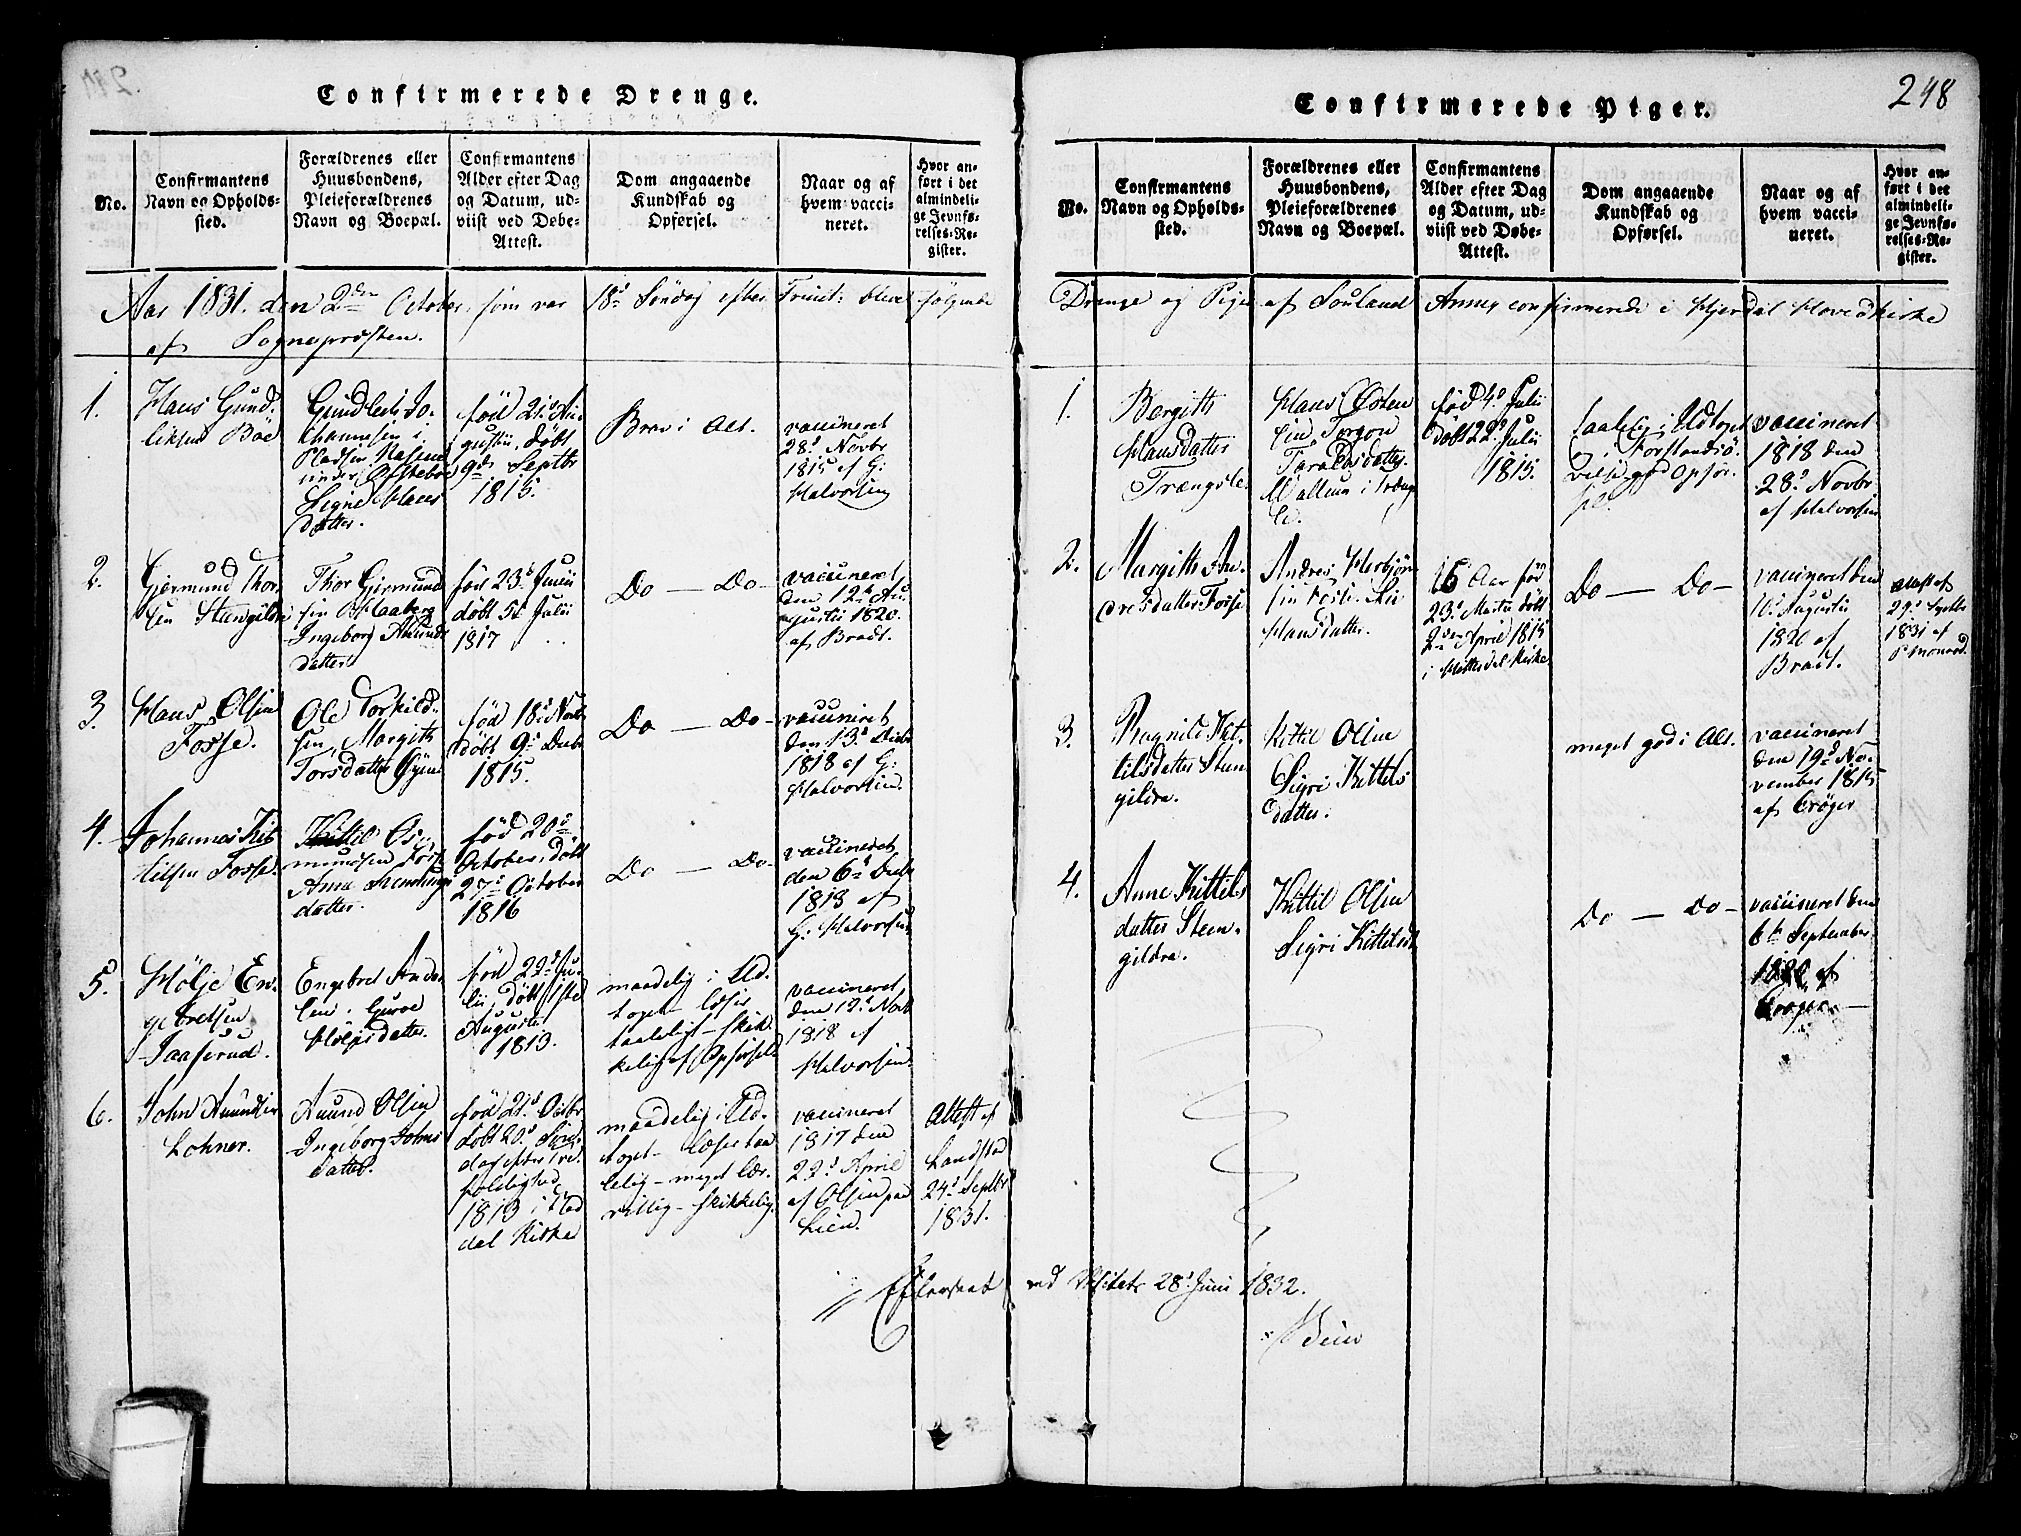 248
Confirmerede Drenge.
No.
Confirmantens
Navn og Opholds-
sted.
Forældrenes eller
Huusbondens,
Pleieforældrenes
Navn og Boepæl.
Confirmantens
Alder efter Dag
og Datum, ud-
viist ved Døbe-
Attest.
Dom angaaende
Kundskab og
Opførsel.
Naar og af
hvem vacci-
neret.
Hvor an-
ført i det
almindeli-
ge Jevnfø-
relses-Re-
gister.
Aar 1831. den 2den October, som var 18d Søndag efter Trinit: bleve følgende
af Sognepræsten.
1.
Hans Gund-
liksen Böe
Gundleik Jo-
hannesen i
Pladsen
under
Signe Hans
datter.
fød 21d Au-
gustii, döbt
9d Septbr
1815.
Brav i Alt.
vaccineret
28d Novbr
1815 af G:
Halvorsen
2.
Gjermund Thor-
sen Steengildre
Thor Gjermund
sen
Ingeborg Amunds
datter
fød 23d Junii
döbt 5t Julii
1817
Do — Do —
vaccineret
den 12d Au-
gustii 1820.
af Bradt.
3.
Hans Olsen
Fosse.
Ole Torkild-
sen, Margith
Torsdatter
fød 18d Novb
döbt 9d Decbr
1815.
Do — Do —
vaccineret
den 13d Decbr
1818 af G:
Halvorsen.
4.
Johannes Kit-
tilsen Fosse.
Kittil Os-
mundsen Fosse
Anne
datter.
fød 20d
October, döbt
27d October
1816
Do — Do —
vaccineret
den 6d Decbr
1818 af
G: Halvorsen
5.
Hölje En-
gebretsen
Engebret
sen, Guroe
Höljesdatter.
fød 22d Ju-
lii, döbt 1ste
Augustii
1813.
maadelig i Ud-
toget læser
taaleligt - skik-
kelig af Opførsel
vaccineret
den 12d Novb
1818 af
Halvorsen.
6.
John Aunundsen
Lohner.
Aunund Olsen
Ingeborg Johns
datter.
fød 21d Octbr
döbt 20d Søn-
dag efter Tre-
foldighed
1813 i Flad
dal Kirke
maadelig i Ud-
toget - læser taa
lelig - meget lær-
villig - skikkelig.
vaccineret
1817 den
22d April
af Olsen paa
Lien.
Attest af
Landstad
24d Septbr
1831.
Confirmerede Piger.
No.
Confirmantens
Navn og Opholds-
sted.
Forældrenes eller
Huusbondens,
Pleieforældrenes
Navn og Boepæl.
Confirmantens
Alder efter Dag
og Datum, ud-
viist ved Døbe-
Attest.
Dom angaaende
Kundskab og
Opførsel.
Naar og af
hvem vacci-
neret.
Hvor an-
ført i det
almindeli-
ge Jevnfø-
relses-Re-
gister.
Drenge og Piger af Souland Annex confirmerede i Hjerdal Hovedkirke
1.
Bergith
Hansdatter
Trængsle.
Hans Østen
sen, Torgon
Taraldsdatter
i Træng
le.
fød 4d Julii
döbt 22d Julii
1815.
taalelig i Udtoget
og i Forstandsö-
velse, god Opfør-
sel.
vaccineret
1818 den
28d Novbr
af Halvorsen
2.
Margith An-
dresdatter Fosse
Andres Herbjörn
sen
Hansdatter.
16 Aar fød
23d Martii döbt
2den April 1815
i Hitterdal Kirke
Do — Do —
vaccineret den
10d Augustii
1820 af
Bradt.
Attest af
29d Septbr
1831 af
3.
Ragnild Kit-
tilsdatter Steen
gildre.
Kittil Olsen
Sigri Kittils
datter.
meget god i Alt.
vaccineret
den 19d No-
vember 1815
af Cröger
4.
Anne Kittils
datter Steen-
gildre.
Kittil Olsen
Sigri Kittilsd
Do — Do —
vaccineret den
6te September
1820 af
Cröger —
Efterseet ved Visitats 28d Juni 1832.